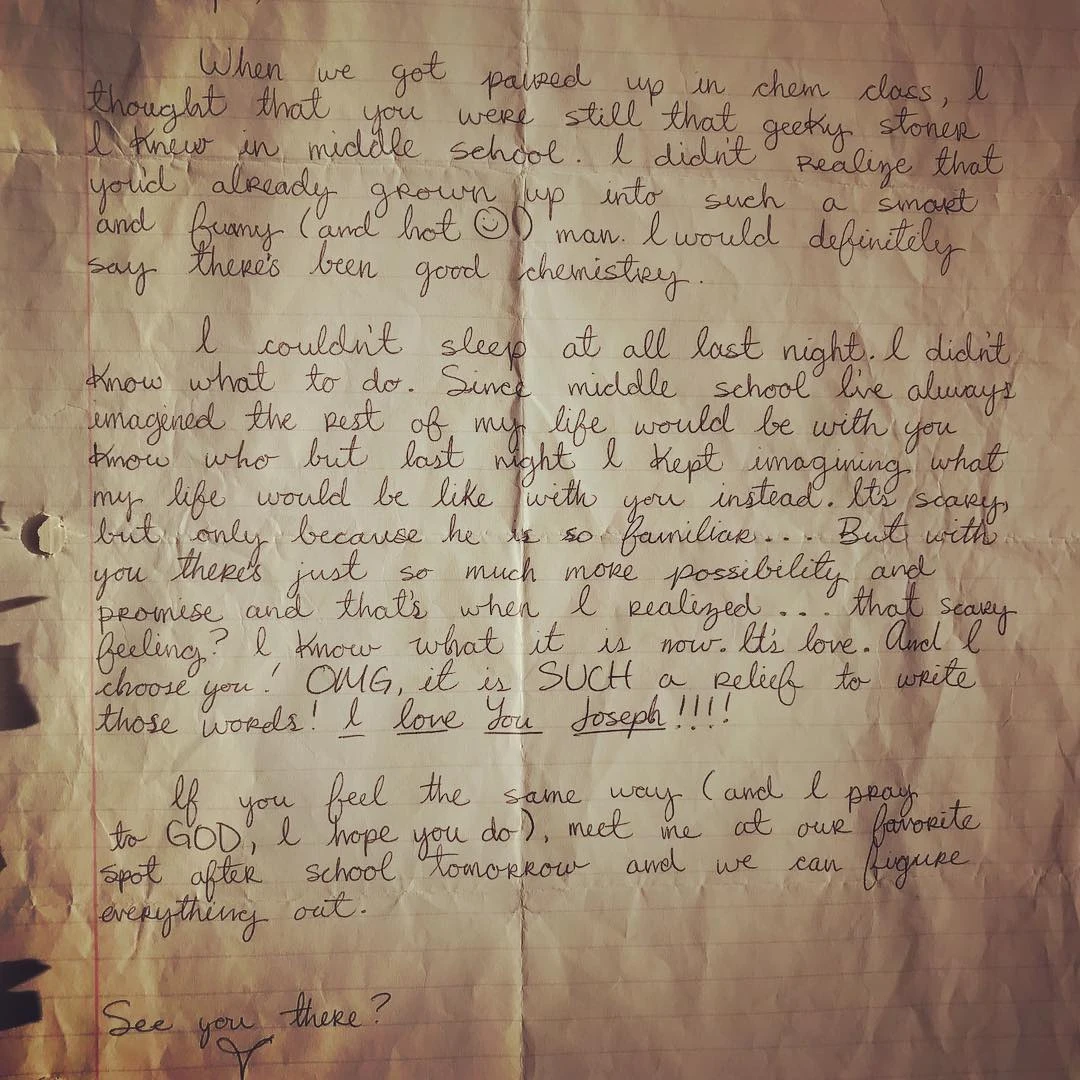 When we got paired up in chem class, I
thought that you were still that geeky stoner
I knew in middle school. I didn't realize that
you'd already grown up into such a smart
and funny (and hot ☺) man. I would definitely
say there's been good chemistry.
I couldn't sleep at all last night. I didn't
know what to do. Since middle school I've always
imagined the rest of my life would be with you
know who but last night I kept imagining what
my life would be like with you instead. It's scary,
but only because he is so familiar... But with
you there's just so much more possibility and
promise and that's when I realized... that scary
feeling? I know what it is now. It's love. And I
choose you! OMG, it is SUCH a relief to write
those words! I love You Joseph!!!!
If you feel the same way (and I pray
to GOD, I hope you do), meet me at our favorite
spot after school tomorrow and we can figure
everything out.
See you there?